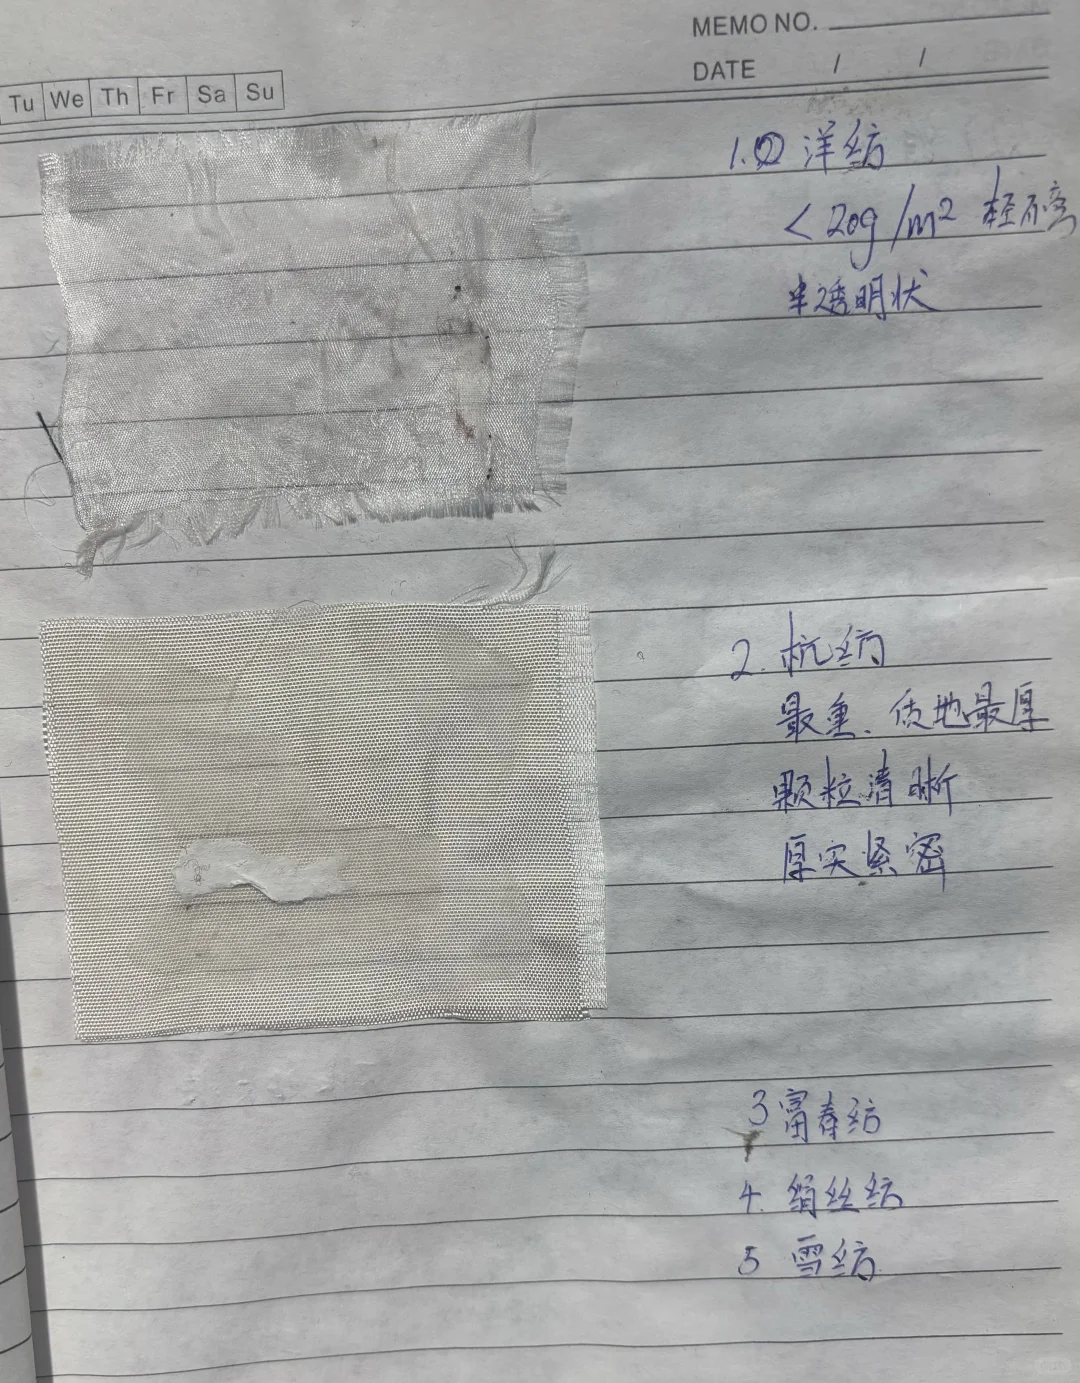 MEMO NO.
DATE / /
Tu We Th Fr Sa Su
1. 洋纺
< 20g/m² 轻磅
半透明状
2. 杭纺
最重、质地最厚
颗粒清晰
厚实紧密
3 富春纺
4. 绢丝纺
5 雪纺